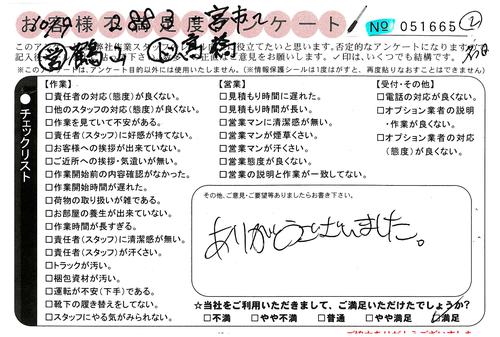 お客様不満足度アンケート!
No 051665 ②
営鶴山 高橋
チェックリスト
【作業】
□責任者の対応(態度)が良くない。
□他のスタッフの対応(態度)が良くない。
□作業を見ていて不安がある。
□責任者(スタッフ)に好感が持てない。
□お客様への挨拶が出来ていない。
□ご近所への挨拶・気遣いが無い。
□作業開始前の内容確認がなかった。
□作業開始時間が遅れた。
□荷物の取り扱いが雑である。
□お部屋の養生が出来ていない。
□作業時間が長すぎる。
□責任者(スタッフ)に清潔感が無い。
□責任者(スタッフ)が汗くさい。
□トラックが汚い。
□梱包資材が汚い。
□運転が不安(下手)である。
□靴下の履き替えをしてない。
□スタッフにやる気がみられない。
【営業】
□見積もり時間に遅れた。
□見積もり時間が長い。
□営業マンに清潔感が無い。
□営業マンが煙草くさい。
□営業マンが汗くさい。
□営業態度が良くない。
□営業の説明と作業が一致してない。
【受付・その他】
□電話の対応が良くない。
□オプション業者の説明
・作業が良くない。
□オプション業者の対応
(態度)が良くない。
その他、ご意見・ご要望等ありましたらお書き下さい。
ありがとうございました。
☆当社をご利用いただきまして、ご満足いただけたでしょうか?
□不満 □やや不満 □普通 □やや満足 ☑満足